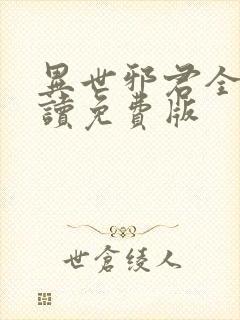 異世邪君全
讀免費版
世倉綾人